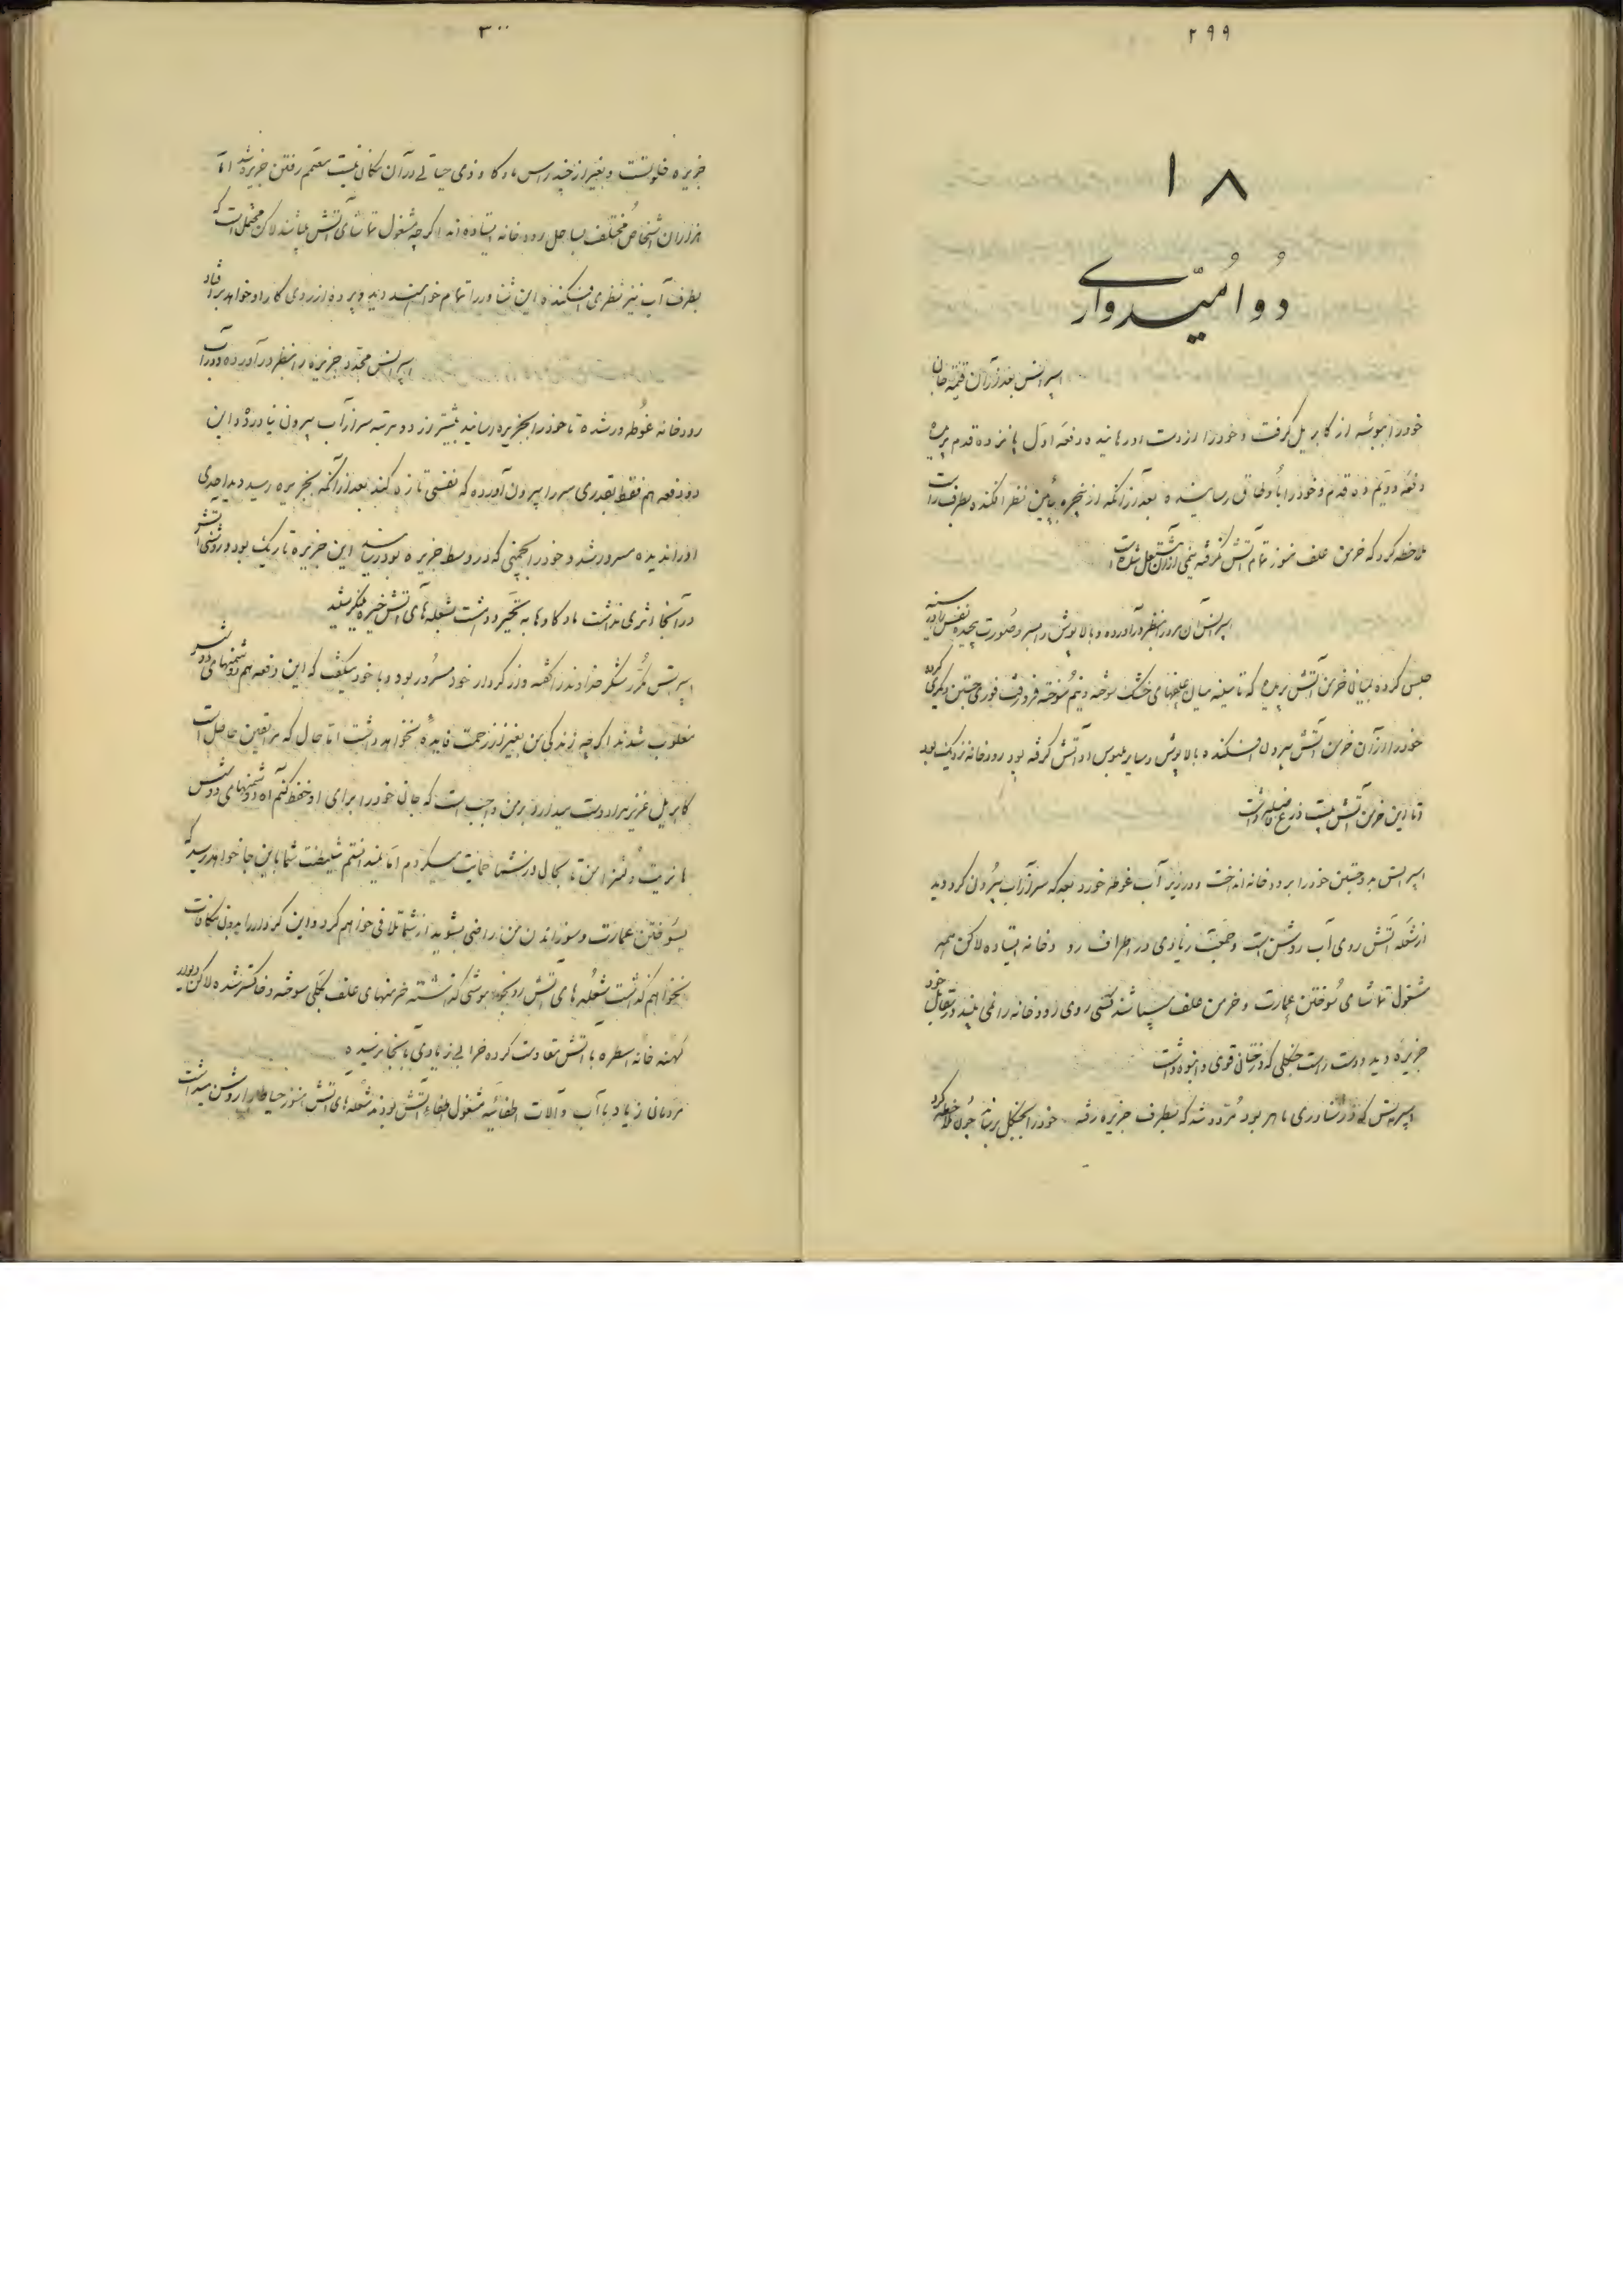 ۲۹۹
۱۸
دو امیدواری
اسپرانس بعد از آن قیمه جان
خود را ببوسه از کابریل گرفت و خود را از دست او رهانیده دفعه اول پانزده قدم پریده
دفعه دویم ده قدم و خود را باوطاق رسانیده بعد از آنکه از پنجره پائین نظر افکنده بطرف راست
ملاحظه کرد که خرمن علف هنوز تمام آتش نگرفته نیمی از آن مشتعل شده است
اسپرانس آن مرور بنظر درآورده و بالاپوش را بسر و صورت پیچیده نفس را در سینه
حبس کرده بمیان خرمن آتش پریده که تا سینه میان علفهای خشک سوخته و نیم سوخته فرو رفت فوری جستن دیگری کرده
خود را از آن خرمن آتش بیرون افکنده بالاپوش و سایر ملبوس او آتش گرفته بود رودخانه نزدیک بود
و تا این خرمن آتش بیست ذرع فاصله داشت
اسپرانس بدو جستن خود را برودخانه انداخت و در زیر آب غوطه خورد بعد که سر از آب بیرون کرد دید
از شعله آتش روی آب روشن است و جمعیت زیادی در اطراف رودخانه ایستاده لاکن همه
مشغول تماشای سوختن عمارت و خرمن علف میباشند کسی روی رودخانه را نمی بیند در مقابل خود
جزیره دید و دست راست جنگلی که درختان قوی و انبوه داشت
اسپرانس که در شناوری ماهر بود مردد شد که بطرف جزیره رفته خود را بجنگل برساند چون ملاحظه کرد
۳۰۰
جزیره خلوتست و بغیر از چند راس ماده کاو ذی حیاتی در آن مکان نیست مصمم رفتن جزیره شد اما
هزاران اشخاص مختلف بساحل رودخانه ایستاده اند اگر چه مشغول تماشای آتش میباشند لاکن محتمل است که
بطرف آب نیز نظری افکنده این شناور را تمام خواهند دید و پرده از روی کار او خواهد برافتاد
اسپرانس مجدد جزیره را بنظر درآورده در آب
رودخانه غوطه ور شده تا خود را بجزیره رسانید بیشتر از دو مرتبه سر از آب بیرون نیاورد و این
دو دفعه هم فقط بقدری سر را بیرون آورده که نفسی تازه کند بعد از آنکه بجزیره رسید دید احدی
او را ندیده مسرور شد و خود را بچمنی که در وسط جزیره بود رسانید این جزیره تاریک بود و روشنی آتش
در آنجا اثری نداشت ماده کاوها به تحیر و دهشت بشعله های آتش خیره مینگریستند
اسپرانس مکرر شکر خداوند را گفته و از کردار خود مسرور بود و با خود میگفت که این دفعه هم دشمنهای دوتس
مغلوب شدند اگر چه زندگی من بغیر از زحمت فایده نخواهد داشت اما حال که مرا یقین حاصل است
کابریل عزیز مرا دوست میدارد بر من واجب است که جان خود را برای او حفظ کنم آه دشمنهای دوتس
تا نیت و بحال در شما حمایت میکردم اما نمیدانستم شیطنت شما باین جا خواهد رسید که
بسوختن عمارت و سوزاندن من راضی بشوید از شما تلافی خواهم کرد و این کردار را بدون مکافات
نخواهم گذاشت شعله های آتش رو بخاموشی گذاشته خرمنهای علف بکلی سوخته و خاکستر شده لاکن دیوار
کهنه خانه با آتش مقاومت کرده خرابی زیادی بآنجا نرسیده
مردمان زیاد با آب و آلات اطفائیه مشغول اطفاء آتش بودند شعله های آتش هنوز حیاط را روشن میداشت